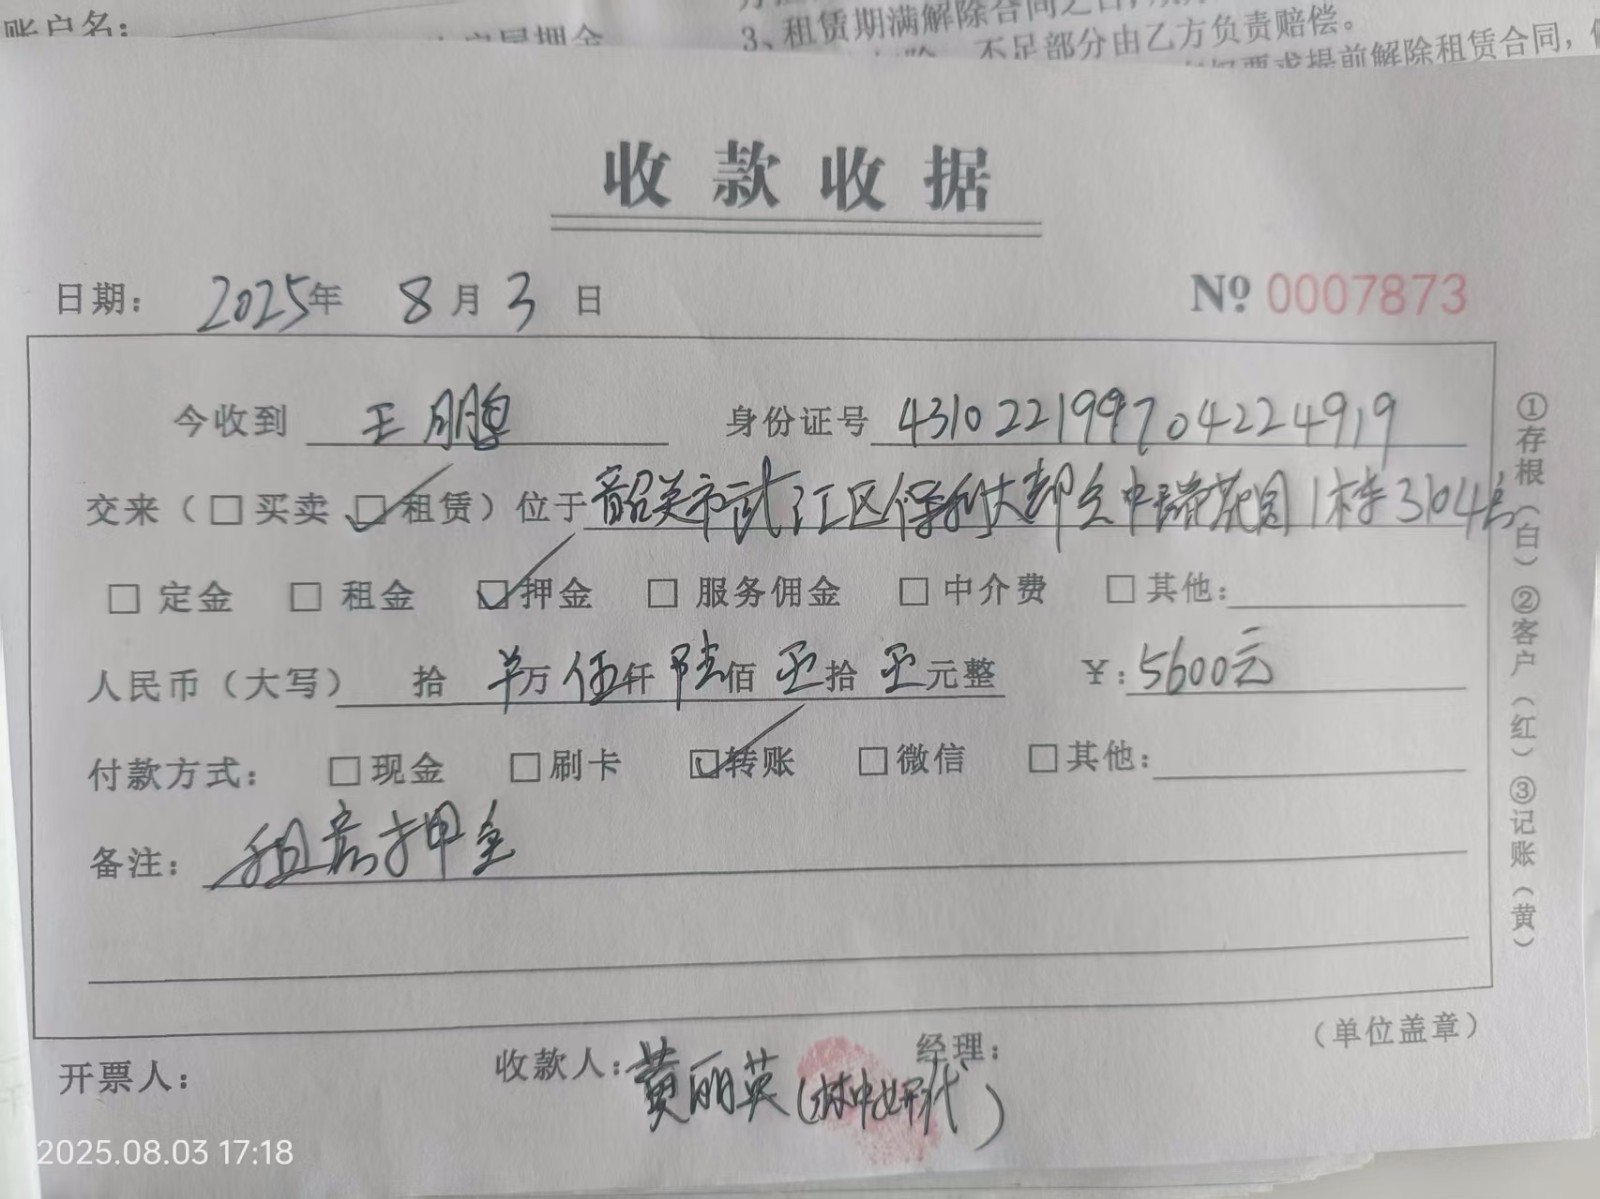 账户名：
3、租赁期满解除合同之日，
不足部分由乙方负责赔偿。
要求提前解除租赁合同，
收款收据
日期： 2025年 8月3日 Nº 0007873
今收到 王鹏 身份证号 431022199704224919
交来（□买卖 ☑租赁）位于韶关市武江区保利大都会中瑞花园1栋3104房
□定金 □租金 ☑押金 □服务佣金 □中介费 □其他：
人民币（大写） 拾 万 伍仟 陆佰 拾 元整 ￥：5600元
付款方式： □现金 □刷卡 ☑转账 □微信 □其他：
备注： 租房押金
①存根（白）②客户（红）③记账（黄）
（单位盖章）
开票人： 收款人：黄丽英（林中妍代） 经理：
2025.08.03 17:18